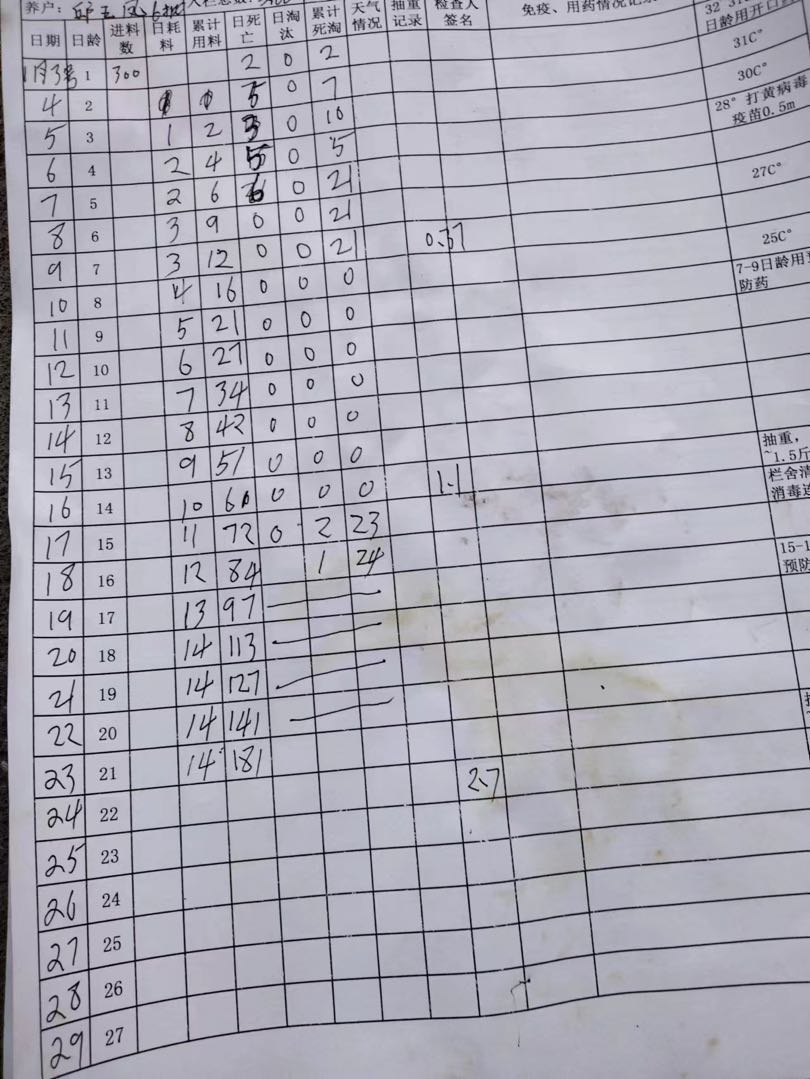 养户：邱玉凤 入栏总数：
日期 日龄 进料数 日耗料 累计用料 日死亡 日淘汰 累计死淘 天气情况 抽重记录 检查人签名 免疫、用药情况记录
日龄用开口
1月3号 1 300 2 0 2 31C°
4 2 5 0 7 30C°
5 3 1 2 3 0 10 28°打黄病毒疫苗0.5m
6 4 2 4 5 0 5
7 5 2 6 6 0 21 27C°
8 6 3 9 0 0 21
9 7 3 12 0 0 21 0.37 25C°
10 8 4 16 0 0 0 7-9日龄用预防药
11 9 5 21 0 0 0
12 10 6 27 0 0 0
13 11 7 34 0 0 0
14 12 8 42 0 0 0
15 13 9 51 0 0 0 抽重，~1.5斤
16 14 10 61 0 0 0 1.1 栏舍清消毒连
17 15 11 72 0 2 23
18 16 12 84 1 24 15-1预防
19 17 13 97
20 18 14 113
21 19 14 127
22 20 14 141
23 21 14 181 2.7
24 22
25 23
26 24
27 25
28 26
29 27